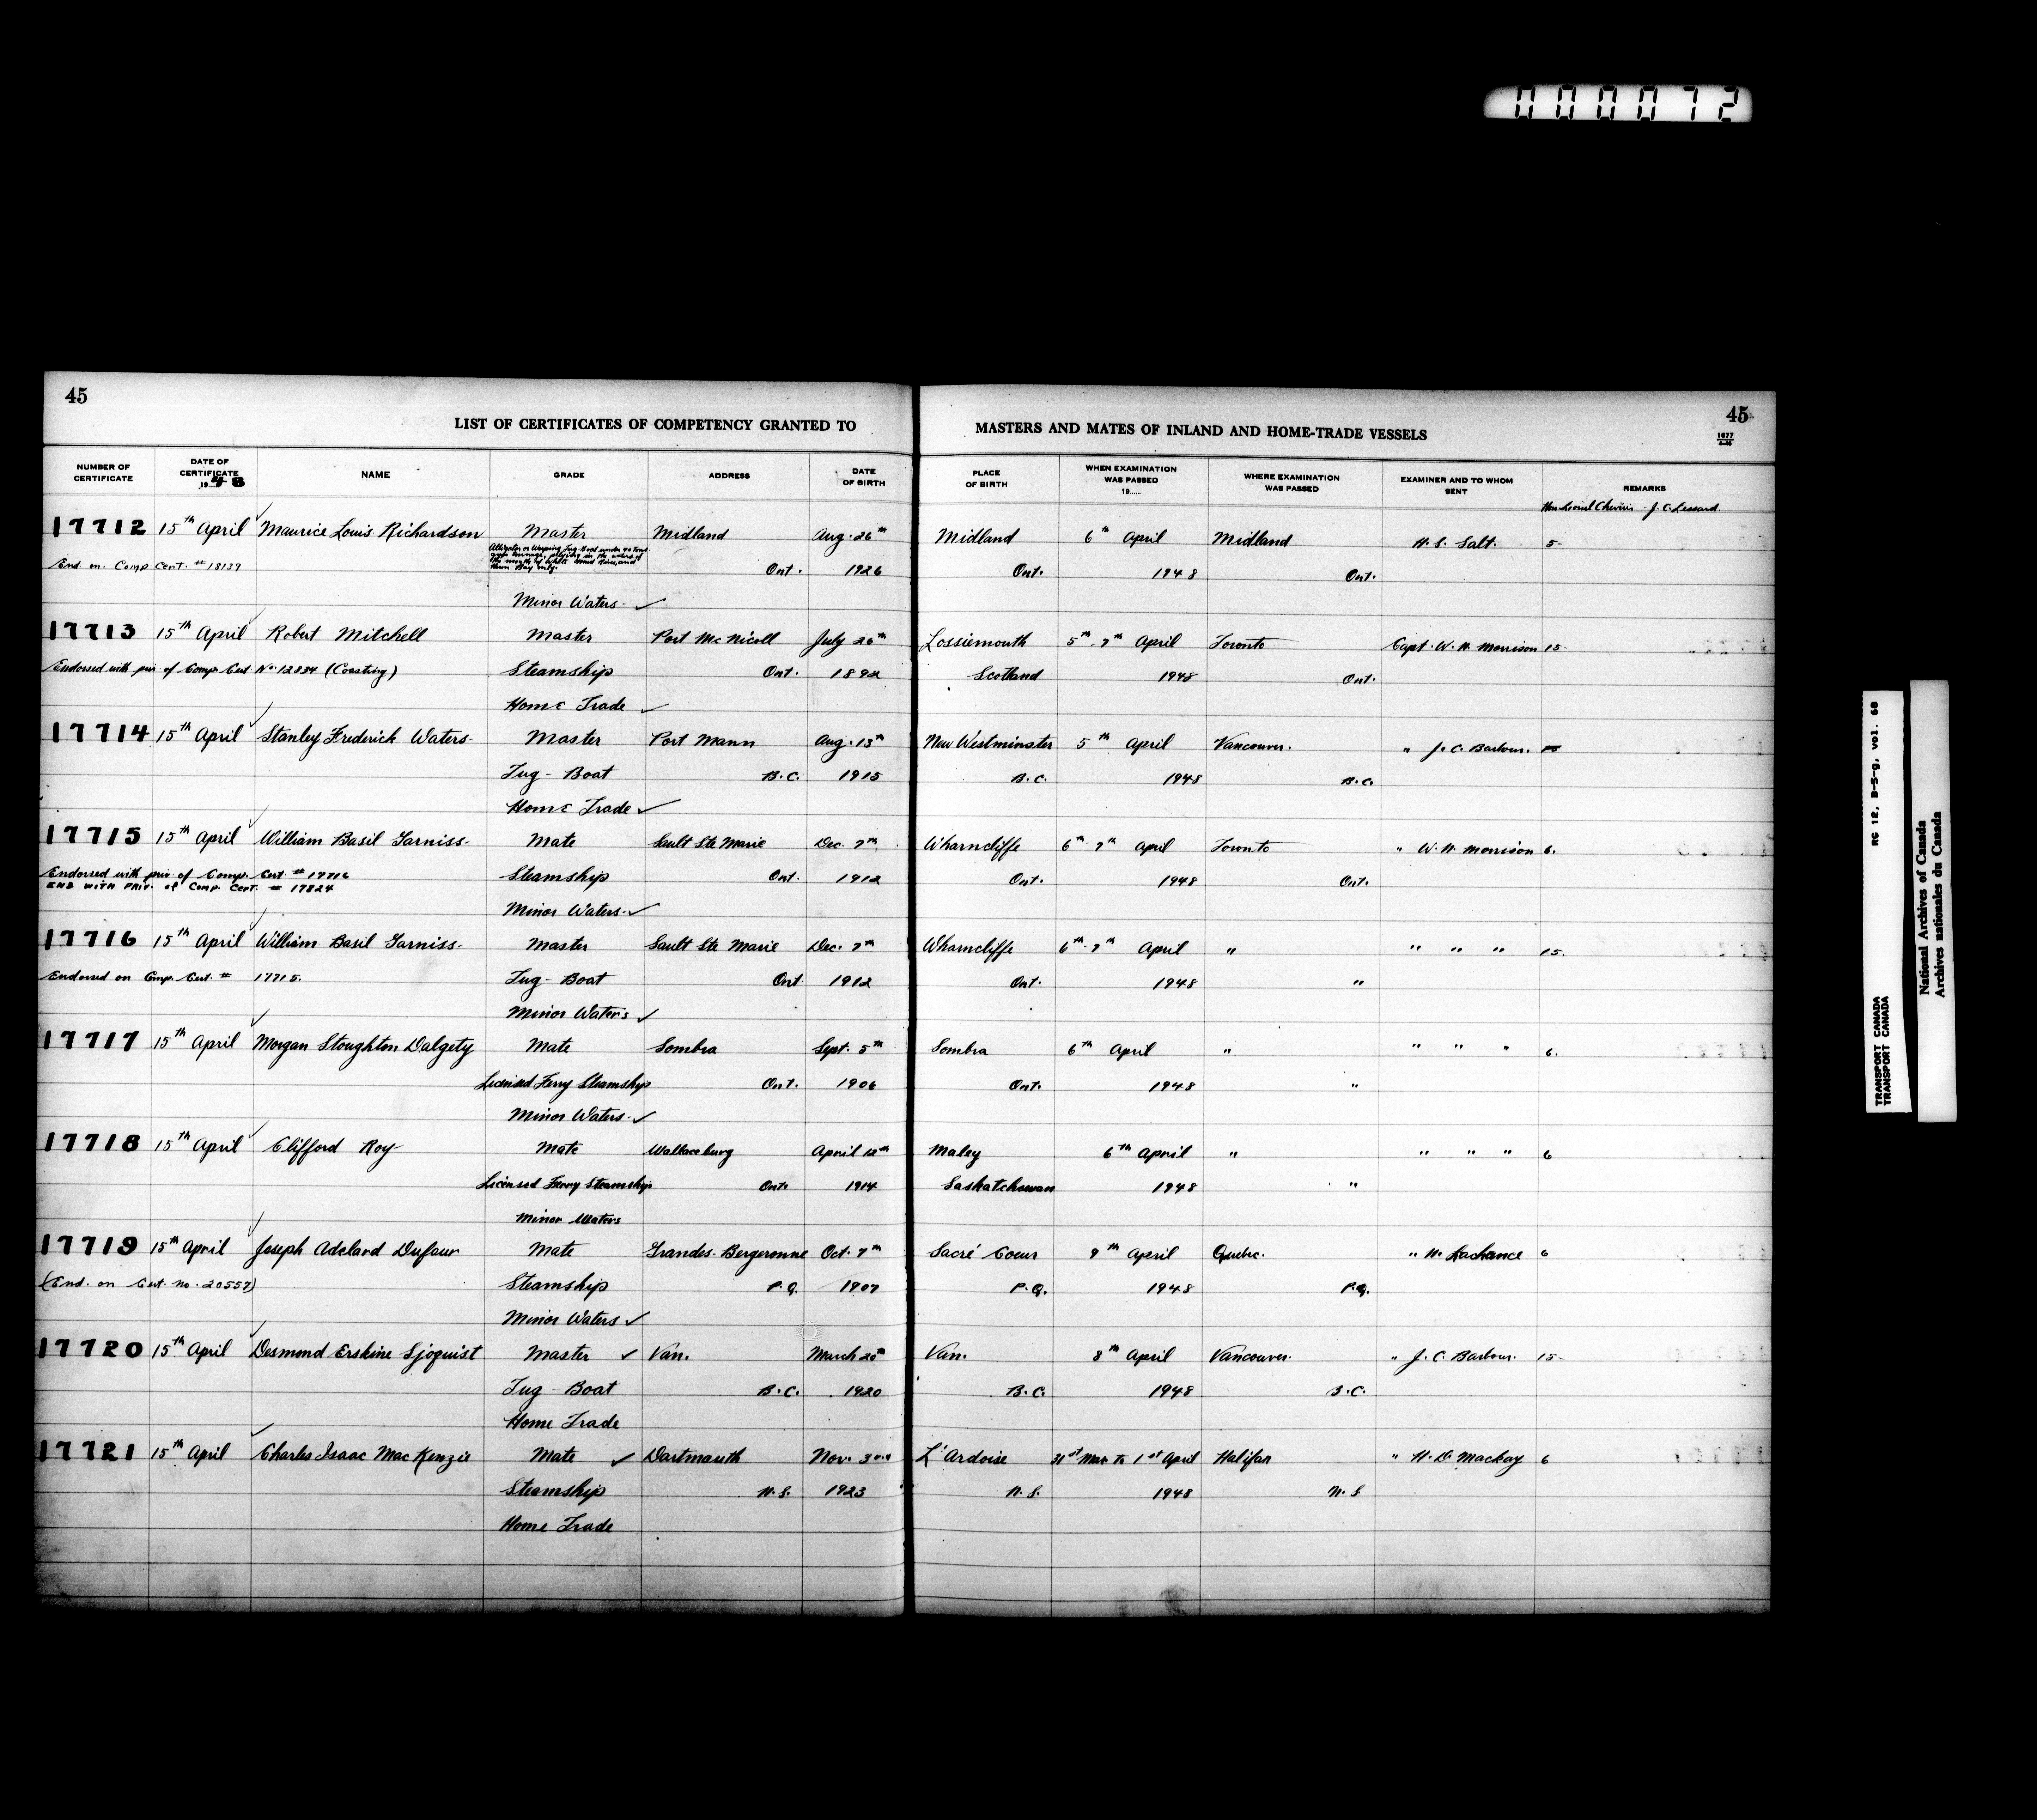 000072
45
45
1677
LIST OF CERTIFICATES OF COMPETENCY GRANTED TO MASTERS AND MATES OF INLAND AND HOME-TRADE VESSELS
NUMBER OF CERTIFICATE DATE OF CERTIFICATE 1948 NAME GRADE ADDRESS DATE OF BIRTH PLACE OF BIRTH WHEN EXAMINATION WAS PASSED 19..... WHERE EXAMINATION WAS PASSED EXAMINER AND TO WHOM SENT REMARKS
Hon Lionel Chevrier - J. C. Lessard.
17712 15th April Maurice Louis Richardson Master Midland Aug. 26th Midland 6th April Midland H. S. Salt. 5-
Alligator or Warping Tug-Boat under 40 tons
gross tonnage, plying in the waters of
the mouth of White River, and
only.
End on Comp Cert. # 18139 Ont. 1926 Ont. 1948 Ont.
Minor Waters
17713 15th April Robert Mitchell Master Port McNicoll July 26th Lossiemouth 5th-7th April Toronto Capt. W. H. Morrison 15-
Endorsed with priv of Comp Cert No. 12834 (Coasting) Steamship Ont. 1892 Scotland 1948 Ont.
Home Trade
17714 15th April Stanley Frederick Waters Master Port Mann Aug. 13th New Westminster 5th April Vancouver. " J. C. Barbour. 15
Tug-Boat B.C. 1915 B.C. 1948 B.C.
Home Trade
17715 15th April William Basil Garniss Mate Sault Ste Marie Dec. 7th Wharncliffe 6th-7th April Toronto " W. H. Morrison 6.
Endorsed with priv of Comp. Cert. # 17716 Steamship Ont. 1912 Ont. 1948 Ont.
END WITH PRIV. of Comp. Cert. # 17824
Minor Waters
17716 15th April William Basil Garniss Master Sault Ste Marie Dec. 7th Wharncliffe 6th-7th April " " " " 15.
Endorsed on Comp. Cert. # 17715. Tug-Boat Ont 1912 Ont. 1948 "
Minor Waters
17717 15th April Morgan Stoughton Dalgety Mate Sombra Sept. 5th Sombra 6th April " " " " 6.
Licensed Ferry Steamship Ont. 1906 Ont. 1948 "
Minor Waters
17718 15th April Clifford Roy Mate Wallaceburg April 12th Maley 6th April " " " " 6
Licensed Ferry Steamship Ont 1914 Saskatchewan 1948 "
Minor Waters
17719 15th April Joseph Adelard Dufour Mate Grandes-Bergeronne Oct. 7th Sacré Coeur 9th April Quebec. " H. Lachance 6
(End. on Cert. no. 20557) Steamship P.Q. 1907 P.Q. 1948 P.Q.
Minor Waters
17720 15th April Desmond Erskine Sjoquist Master Van. March 20th Van. 8th April Vancouver. " J. C. Barbour. 15-
Tug Boat B.C. 1920 B.C. 1948 B.C.
Home Trade
17721 15th April Charles Isaac MacKenzie Mate Dartmouth Nov. 3rd L'Ardoise 31st Mar. to 1st April Halifax " H. D. Mackay 6
Steamship N.S. 1923 N.S. 1948 N.S.
Home Trade
RG 12, B-5-g, vol. 68
TRANSPORT CANADA
TRANSPORT CANADA
National Archives of Canada
Archives nationales du Canada